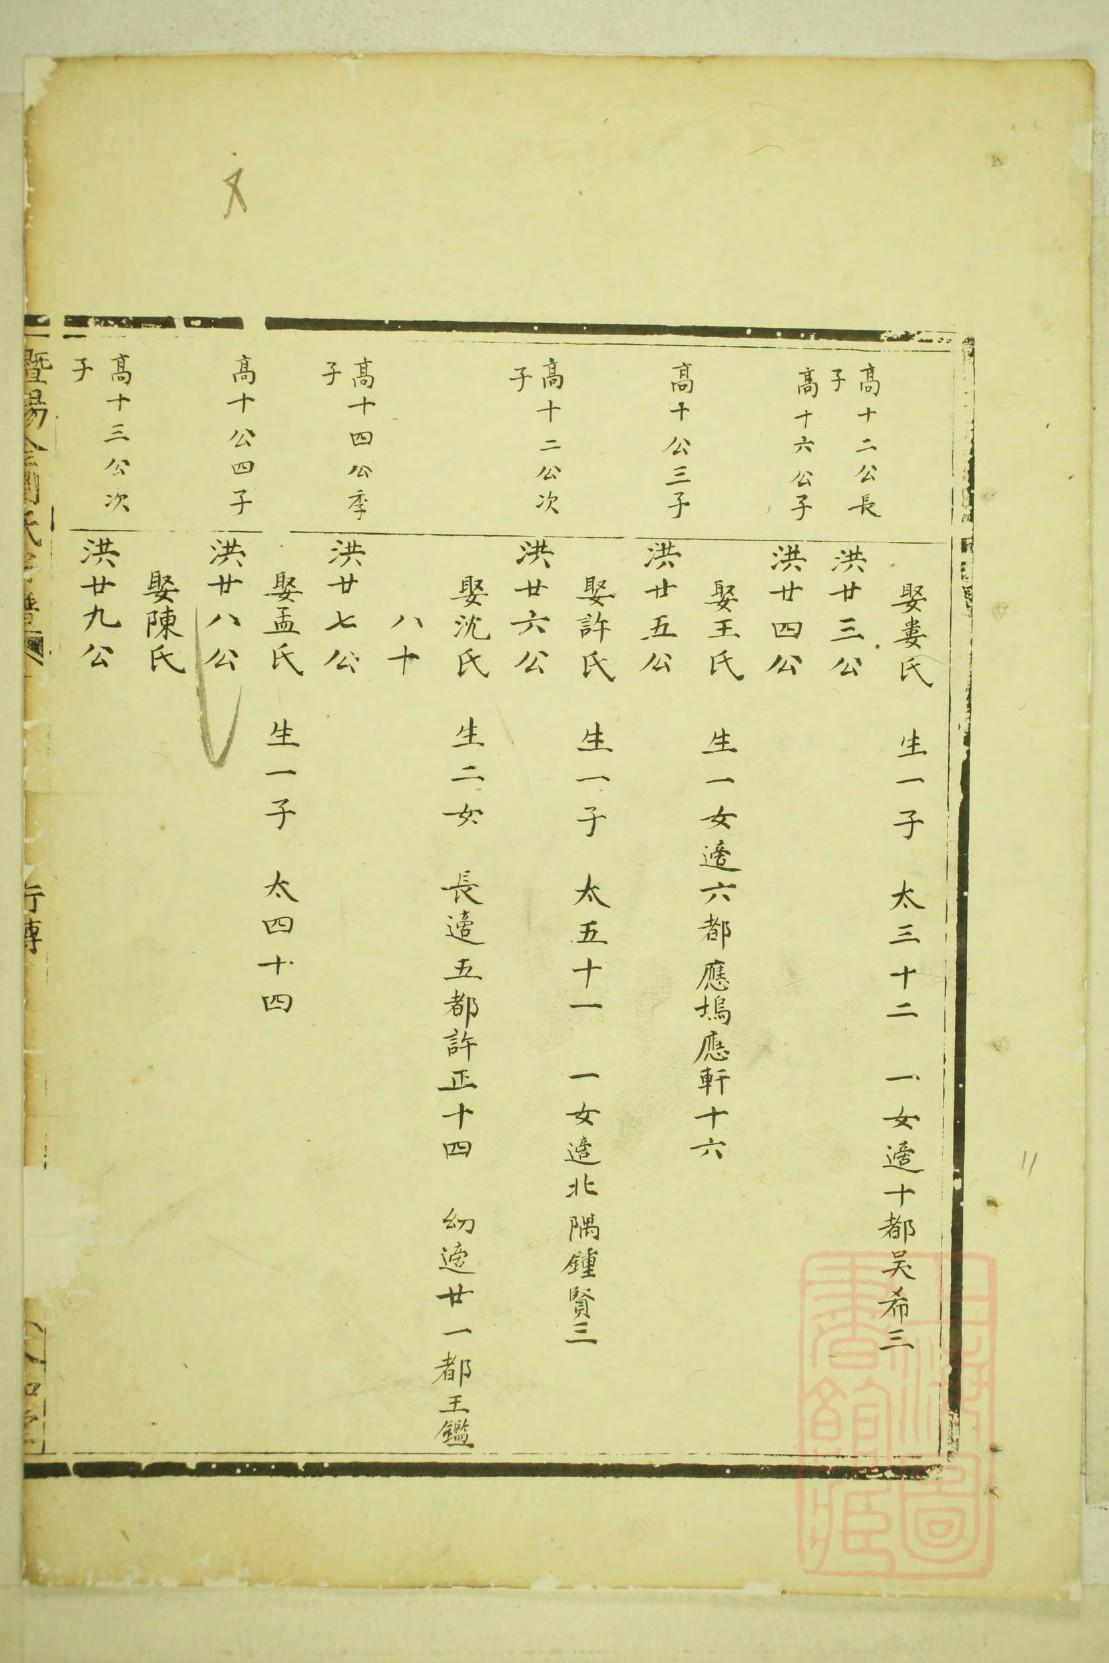 娶婁氏 生一子 太三十二 一女適十都吴希三
高十二公長子
洪廿三公
高十六公子
洪廿四公
娶王氏 生一女適六都應塢應軒十六
高十公三子
洪廿五公
娶許氏 生一子 太五十一 一女適北隅鍾賢三
高十二公次子
洪廿六公
娶沈氏 生二女 長適五都許正十四 幼適廿一都王鑑
八十
高十四公季子
洪廿七公
娶孟氏 生一子 太四十四
高十公四子
洪廿八公
娶陳氏
高十三公次子
洪廿九公
暨陽
行傳
上海圖書館藏